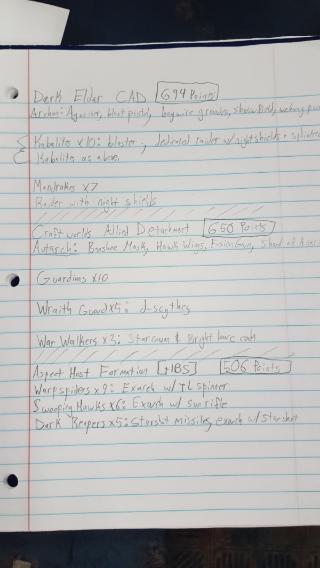 Dark Eldar CAD 694 Points
Archon: Agoniser, blast pistol, haywire grenades, shadowfield, webway
Kabalite x10: blaster, dedicated raider w/ nightshields + splinter
Kabalite as above
Mandrakes x7
Raider with night shields
Craftworlds Allied Detachment 650 Points
Autarch: Banshee Mask, Hawk Wings, Fusion Gun, Shard of
Guardians x10
Wraith Guard x5: d-scythes
War Walkers x3: Starcannon & Bright lance each
Aspect Host Formation [+1BS] 506 Points
Warpspiders x9: Exarch w/ TL spinner
Sweeping Hawks x6: Exarch w/ sunrifle
Dark Reapers x5: Starshot missiles, exarch w/ Starshot